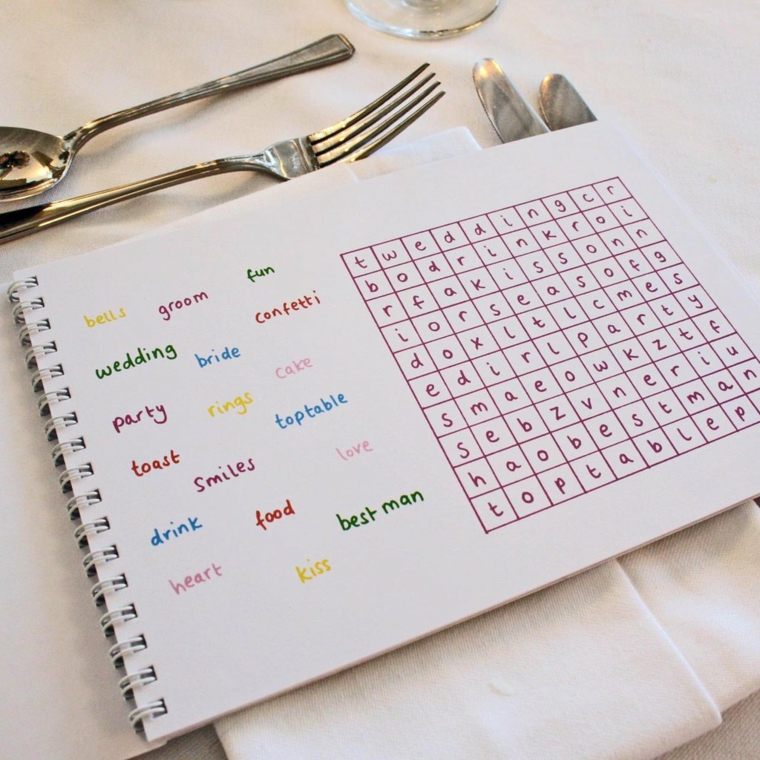 fun
bells groom
confetti
wedding bride
cake
party rings toptable
toast
smiles love
drink food best man
heart kiss
t w e d d i n g c r
b o d r i n k r o i
r f a k i s s o n n
i o r s e a s o f g
d o x l t l c m e s
e d i r l p a r t y
s m a e o w k z t f
s e b z v n e r i u
h a o b e s t m a n
t o p t a b l e p